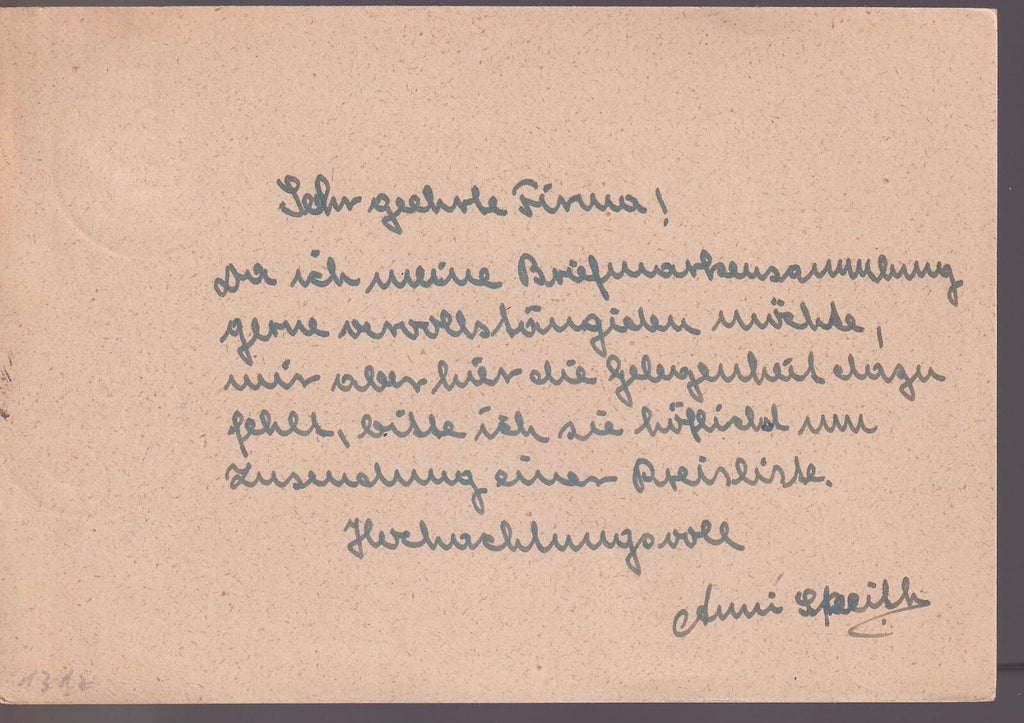 Sehr geehrte Firma!
Da ich meine Briefmarkensammlung
gerne vervollstängiden möchte,
mir aber hier die Gelegenheit dazu
fehlt, bitte ich sie höflichst um
Zusendung einer Preisliste.
Hochachtungsvoll
Anni